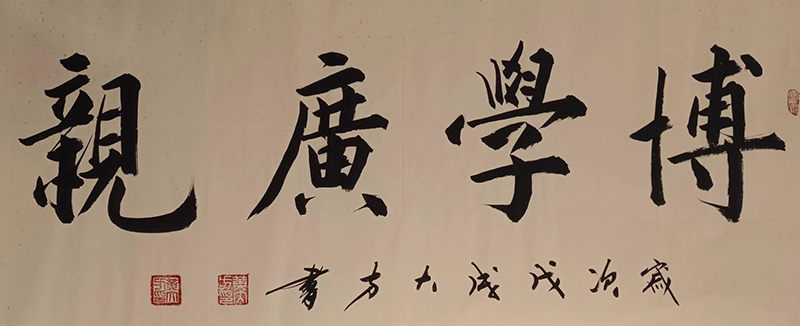 博學廣親
歲次戊戌大方書